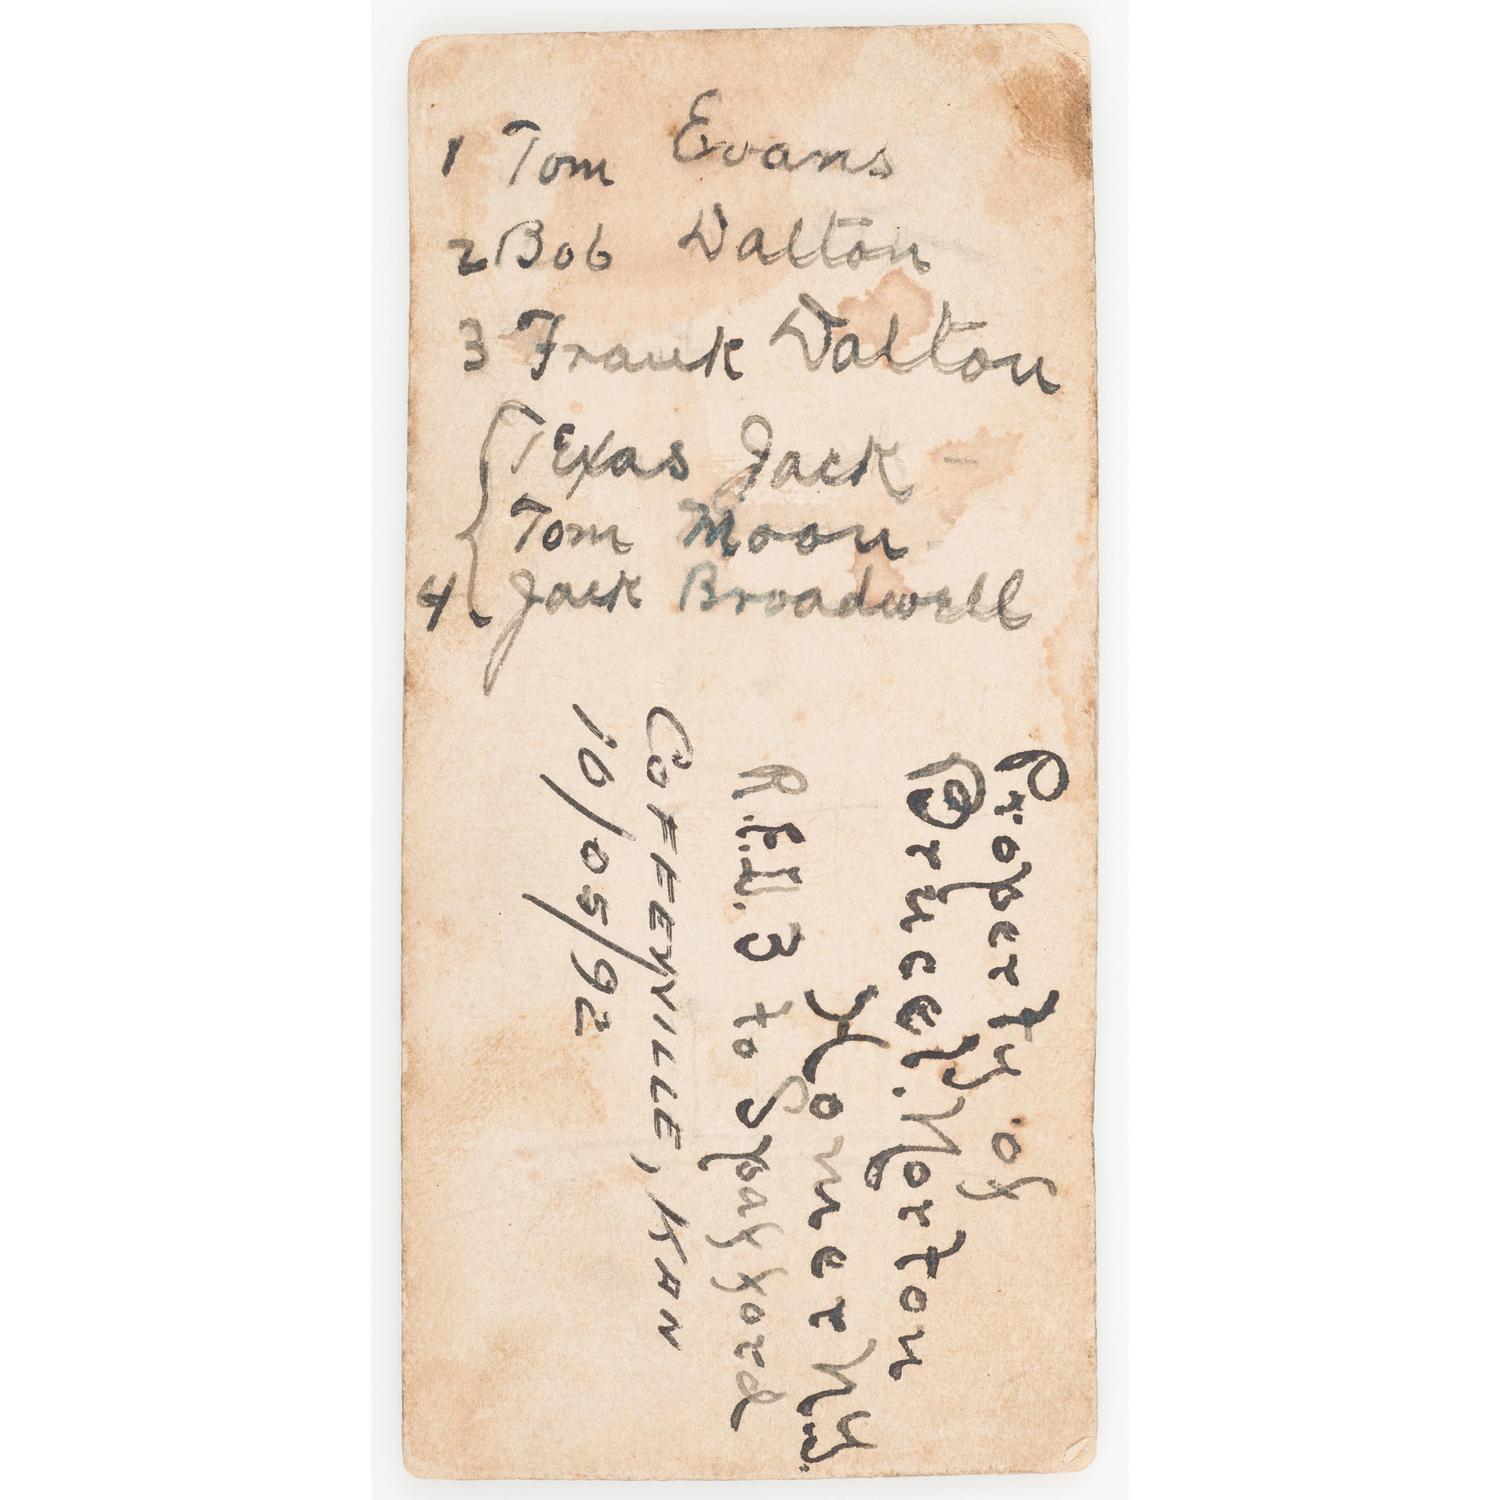 1 Tom Evans
2 Bob Dalton
3 Frank Dalton
Texas Jack -
Tom Moon -
4 Jack Broadwell
Property of
Bruce J. Norton
Homer N.Y.
R.F.D. 3 to Spafford
COFFEYVILLE, KAN
10/05/92